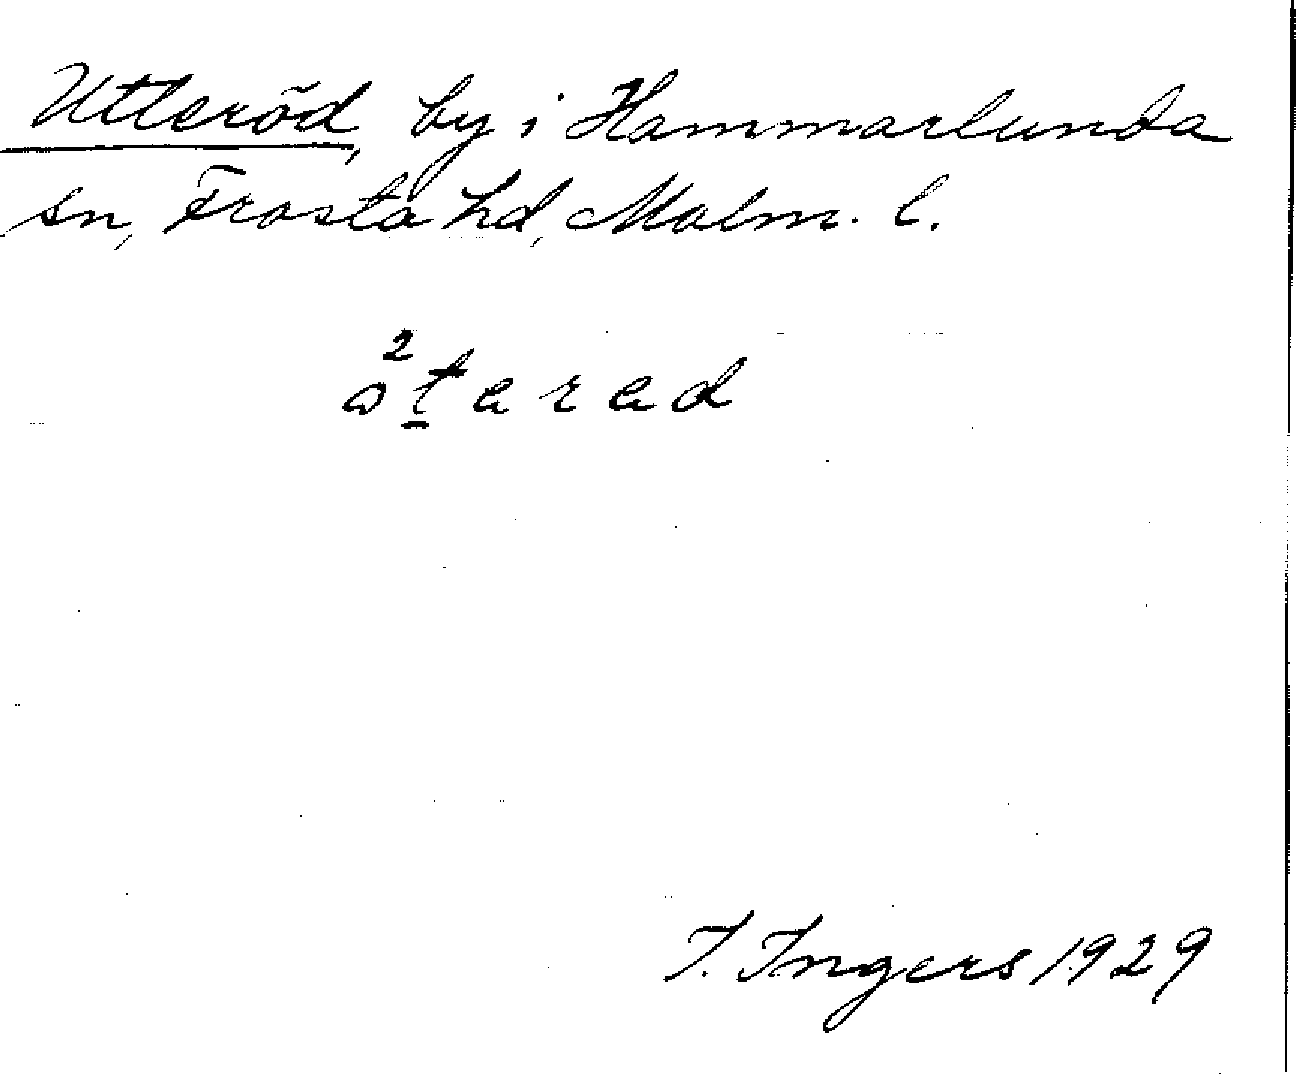 Utleröd, by i Hammarlunda
sn, Frosta hd, Malm. l.
a²t̲arad
I. Ingers 1929